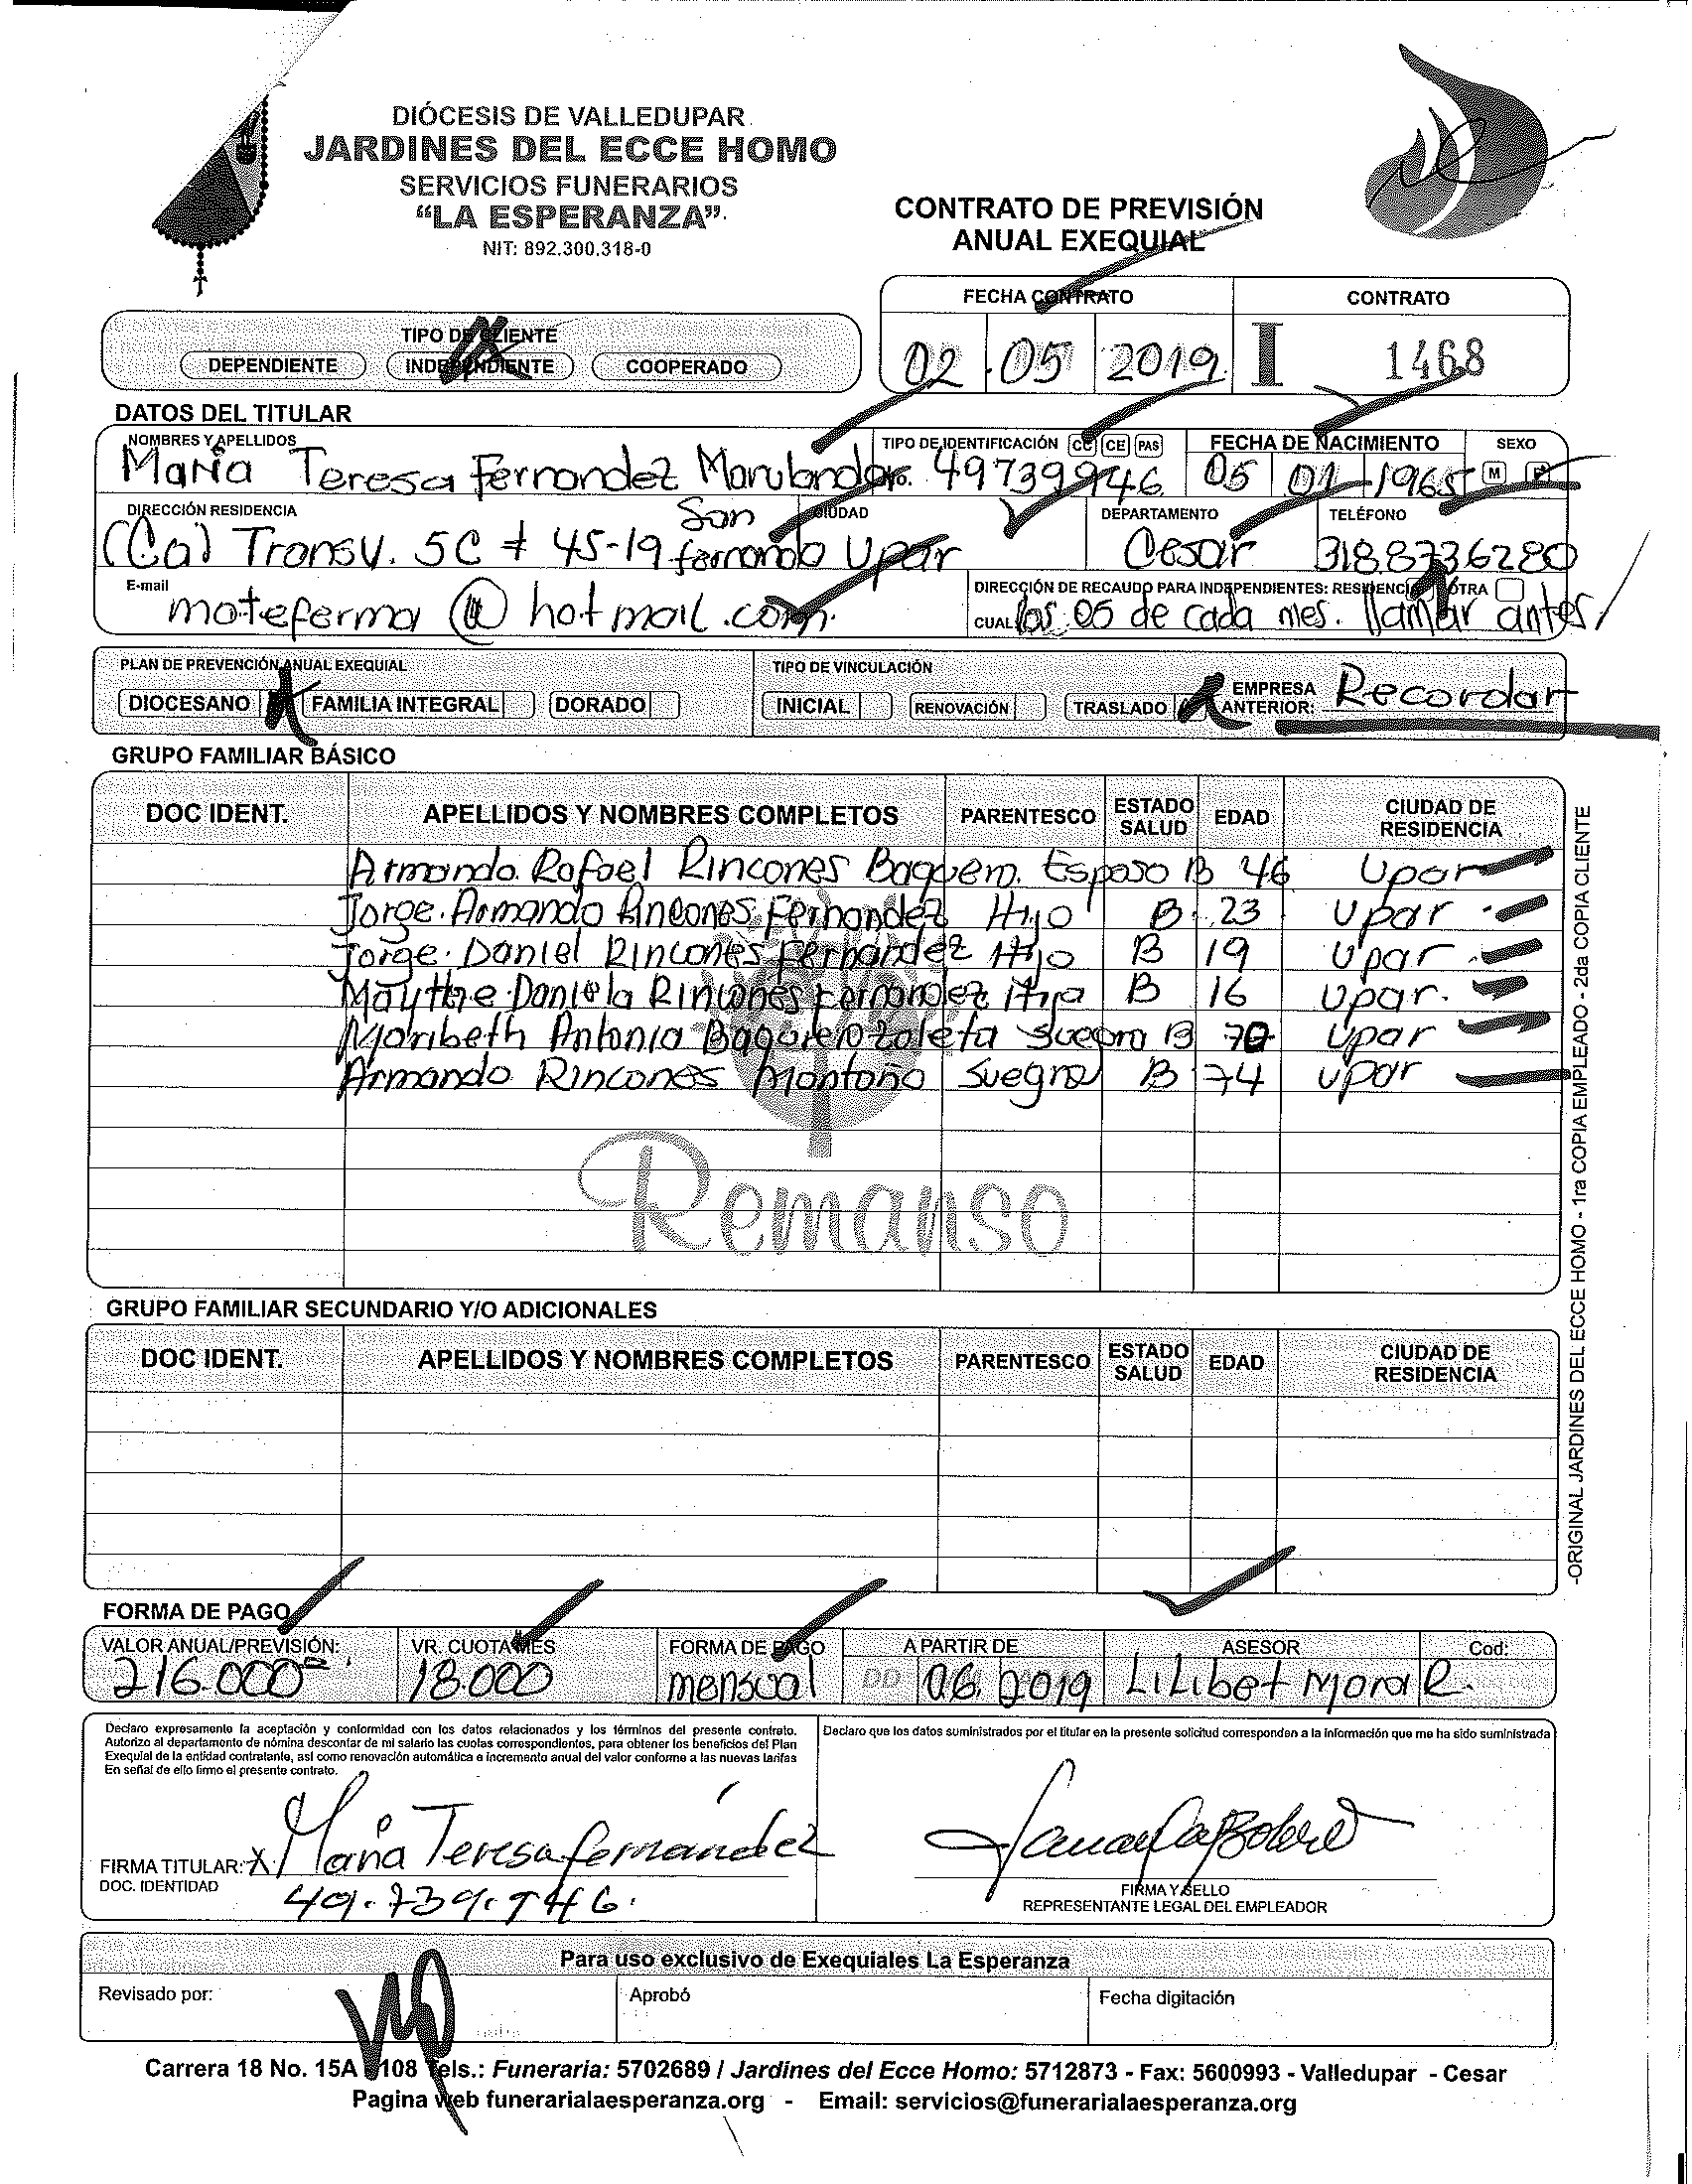 DIÓCESIS DE VALLEDUPAR
JARDINES DEL ECCE HOMO
SERVICIOS FUNERARIOS
"LA ESPERANZA".
NIT: 892.300.318-0
CONTRATO DE PREVISIÓN
ANUAL EXEQUIAL
FECHA CONTRATO CONTRATO
02 05 2019 I 1468
TIPO DE CLIENTE
DEPENDIENTE INDEPENDIENTE COOPERADO
DATOS DEL TITULAR
NOMBRES Y APELLIDOS TIPO DE IDENTIFICACIÓN CC CE PAS FECHA DE NACIMIENTO SEXO
Maria Teresa Fernandez Marulanda No. 49739946 05 01 1965 M F
DIRECCIÓN RESIDENCIA CIUDAD DEPARTAMENTO TELÉFONO
(Ca) Transv. 5C # 45-19 San fernando Upar Cesar 3188736280
E-mail DIRECCIÓN DE RECAUDO PARA INDEPENDIENTES: RESIDENCIA OTRA
moteferma @ hotmail.com. CUAL los 05 de cada mes. llamar antes
PLAN DE PREVENCIÓN ANUAL EXEQUIAL TIPO DE VINCULACIÓN
DIOCESANO FAMILIA INTEGRAL DORADO INICIAL RENOVACIÓN TRASLADO EMPRESA ANTERIOR: Recordar
GRUPO FAMILIAR BÁSICO
DOC IDENT. APELLIDOS Y NOMBRES COMPLETOS PARENTESCO ESTADO SALUD EDAD CIUDAD DE RESIDENCIA
Armando Rafael Rincones Baquero. Esposo B 46 Upar
Jorge Armando Rincones Fernandez Hijo B 23 Upar
Jorge Daniel Rincones Fernandez Hijo B 19 Upar
Maythe Daniela Rincones Fernandez Hija B 16 Upar.
Maribeth Antonia Baquero zaleta Suegra B 70 Upar
Armando Rincones Montaño Suegro B 74 Upar
Remanso
GRUPO FAMILIAR SECUNDARIO Y/O ADICIONALES
DOC IDENT. APELLIDOS Y NOMBRES COMPLETOS PARENTESCO ESTADO SALUD EDAD CIUDAD DE RESIDENCIA
-ORIGINAL JARDINES DEL ECCE HOMO - 1ra COPIA EMPLEADO - 2da COPIA CLIENTE
FORMA DE PAGO
VALOR ANUAL/PREVISIÓN: VR. CUOTA MES FORMA DE PAGO A PARTIR DE ASESOR Cod:
216.000 18.000 mensual DD 06 2019 Lilibet Mora R.
Declaro expresamente la aceptación y conformidad con los datos relacionados y los términos del presente contrato.
Autorizo al departamento de nómina descontar de mi salario las cuotas correspondientes, para obtener los beneficios del Plan
Exequial de la entidad contratante, así como renovación automática e incremento anual del valor conforme a las nuevas tarifas
En señal de ello firmo el presente contrato.
Declaro que los datos suministrados por el titular en la presente solicitud corresponden a la información que me ha sido suministrada
FIRMA TITULAR: X Maria Teresa fernandez
DOC. IDENTIDAD 49.739.946.
FIRMA Y SELLO
REPRESENTANTE LEGAL DEL EMPLEADOR
Para uso exclusivo de Exequiales La Esperanza
Revisado por: Aprobó Fecha digitación
Carrera 18 No. 15A 108 Tels.: Funeraria: 5702689 / Jardines del Ecce Homo: 5712873 - Fax: 5600993 - Valledupar - Cesar
Pagina web funerarialaesperanza.org - Email: servicios@funerarialaesperanza.org